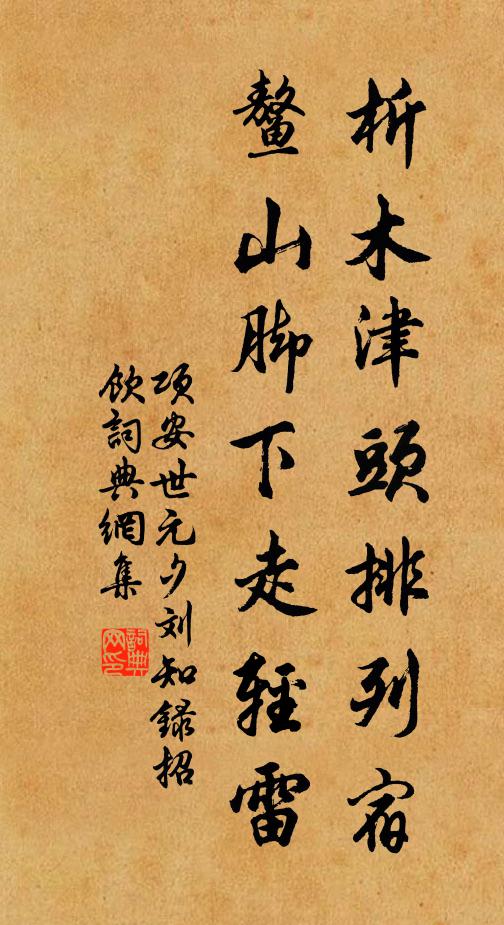 析木津頭排列宿
鼇山脚下走輕雷
項安世元夕刘知錄招
飲詞典網集
詞典网印